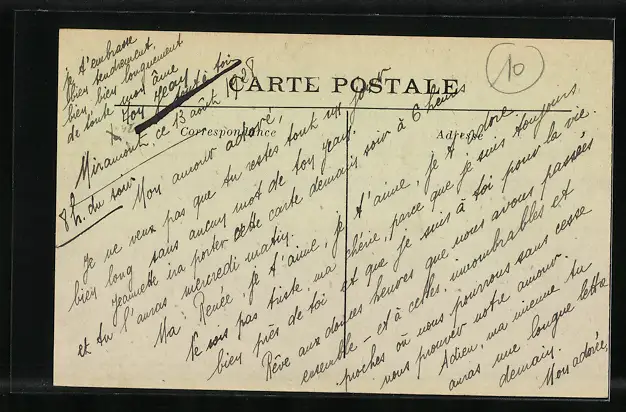 je t'embrasse
bien tendrement
bien, bien longuement
de toute mon âme
Ton Jean
tout à toi
10
CARTE POSTALE
Correspondance
Adresse
Miramont, ce 13 août 1928
8h. du soir
Mon amour adoré,
Je ne veux pas que tu restes tout un jour
bien long sans aucun mot de ton Jean.
Jeannette ira porter cette carte demain soir à 6 heures
et tu l'auras mercredi matin.
Ma Renée, je t'aime, je t'aime, je t'adore.
Ne sois pas triste, ma chérie, parce que je suis toujours
bien près de toi et que je suis à toi pour la vie.
Rêve aux douces heures que nous avons passées
ensemble - et à celles, innombrables et
proches où nous pourrons sans cesse
nous prouver notre amour.
Adieu, ma mienne tu
auras une longue lettre
demain.
Mon adorée,